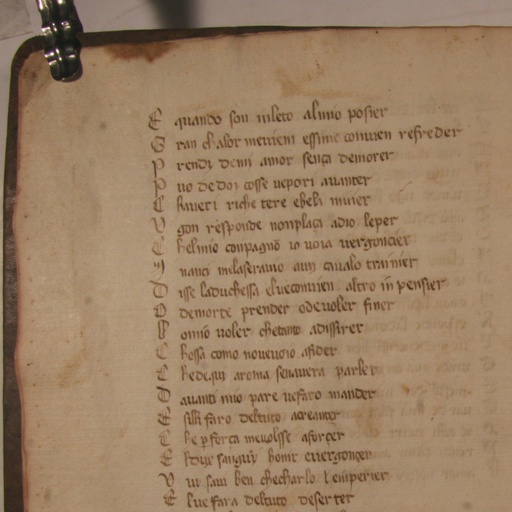 E quando son in leto al mio poſier
G ran chalor me vieni eſſime convien refreder
P rendi demi amor ſença demorer
P uo de doi coſſe ve pori avanter
C haveri riche tere e beli muier
U gon reſponde non plaça a dio leper
C hel mio conpagnō io voia vergoncier
I nanti me laſeravo a un cavalo trainier
D iſſe la ducheſſa el ve convien altro in penſier
O demorte prender o de voler finer
 omio voler che tanto a diſſirer
C hoſſa como no ve vono afider
C he de qui a roma ſe navera parler
D avanti mio pare ve faro mander
E ſilli faro del tuto acreanter
C he ꝑ força me volſſe aforçer
E l dux ſanguȳ honir e vergonçer
V ui ſavi ben che charlo l emperier
E lve fara del tuto deſerter